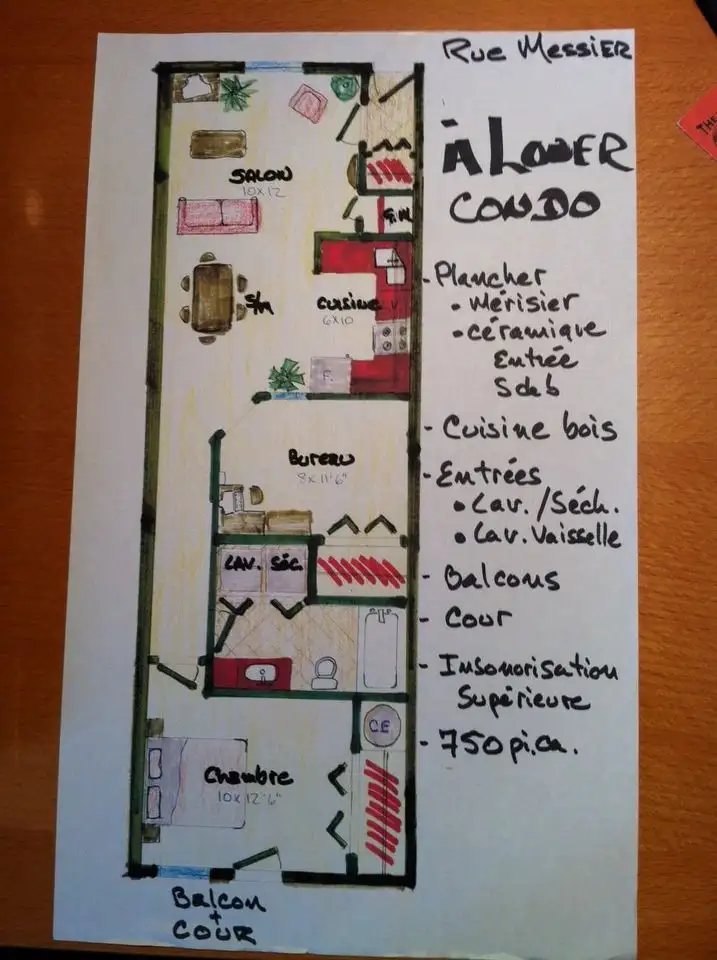 Rue Messier
À Louer
Condo
- Plancher
• Mérisier
• Céramique
Entrée
Sdeb
- Cuisine bois
- Entrées
• Lav./Séch.
• Lav. Vaisselle
- Balcons
- Cour
- Insonorisation
Supérieure
- 750 pi.ca.
SALON
10x12
G.M
S/M
CUISINE
6x10
F.
Bureau
8x11'6"
LAV. SÉC.
CE
Chambre
10x12'6"
Balcon
+
COUR
THE